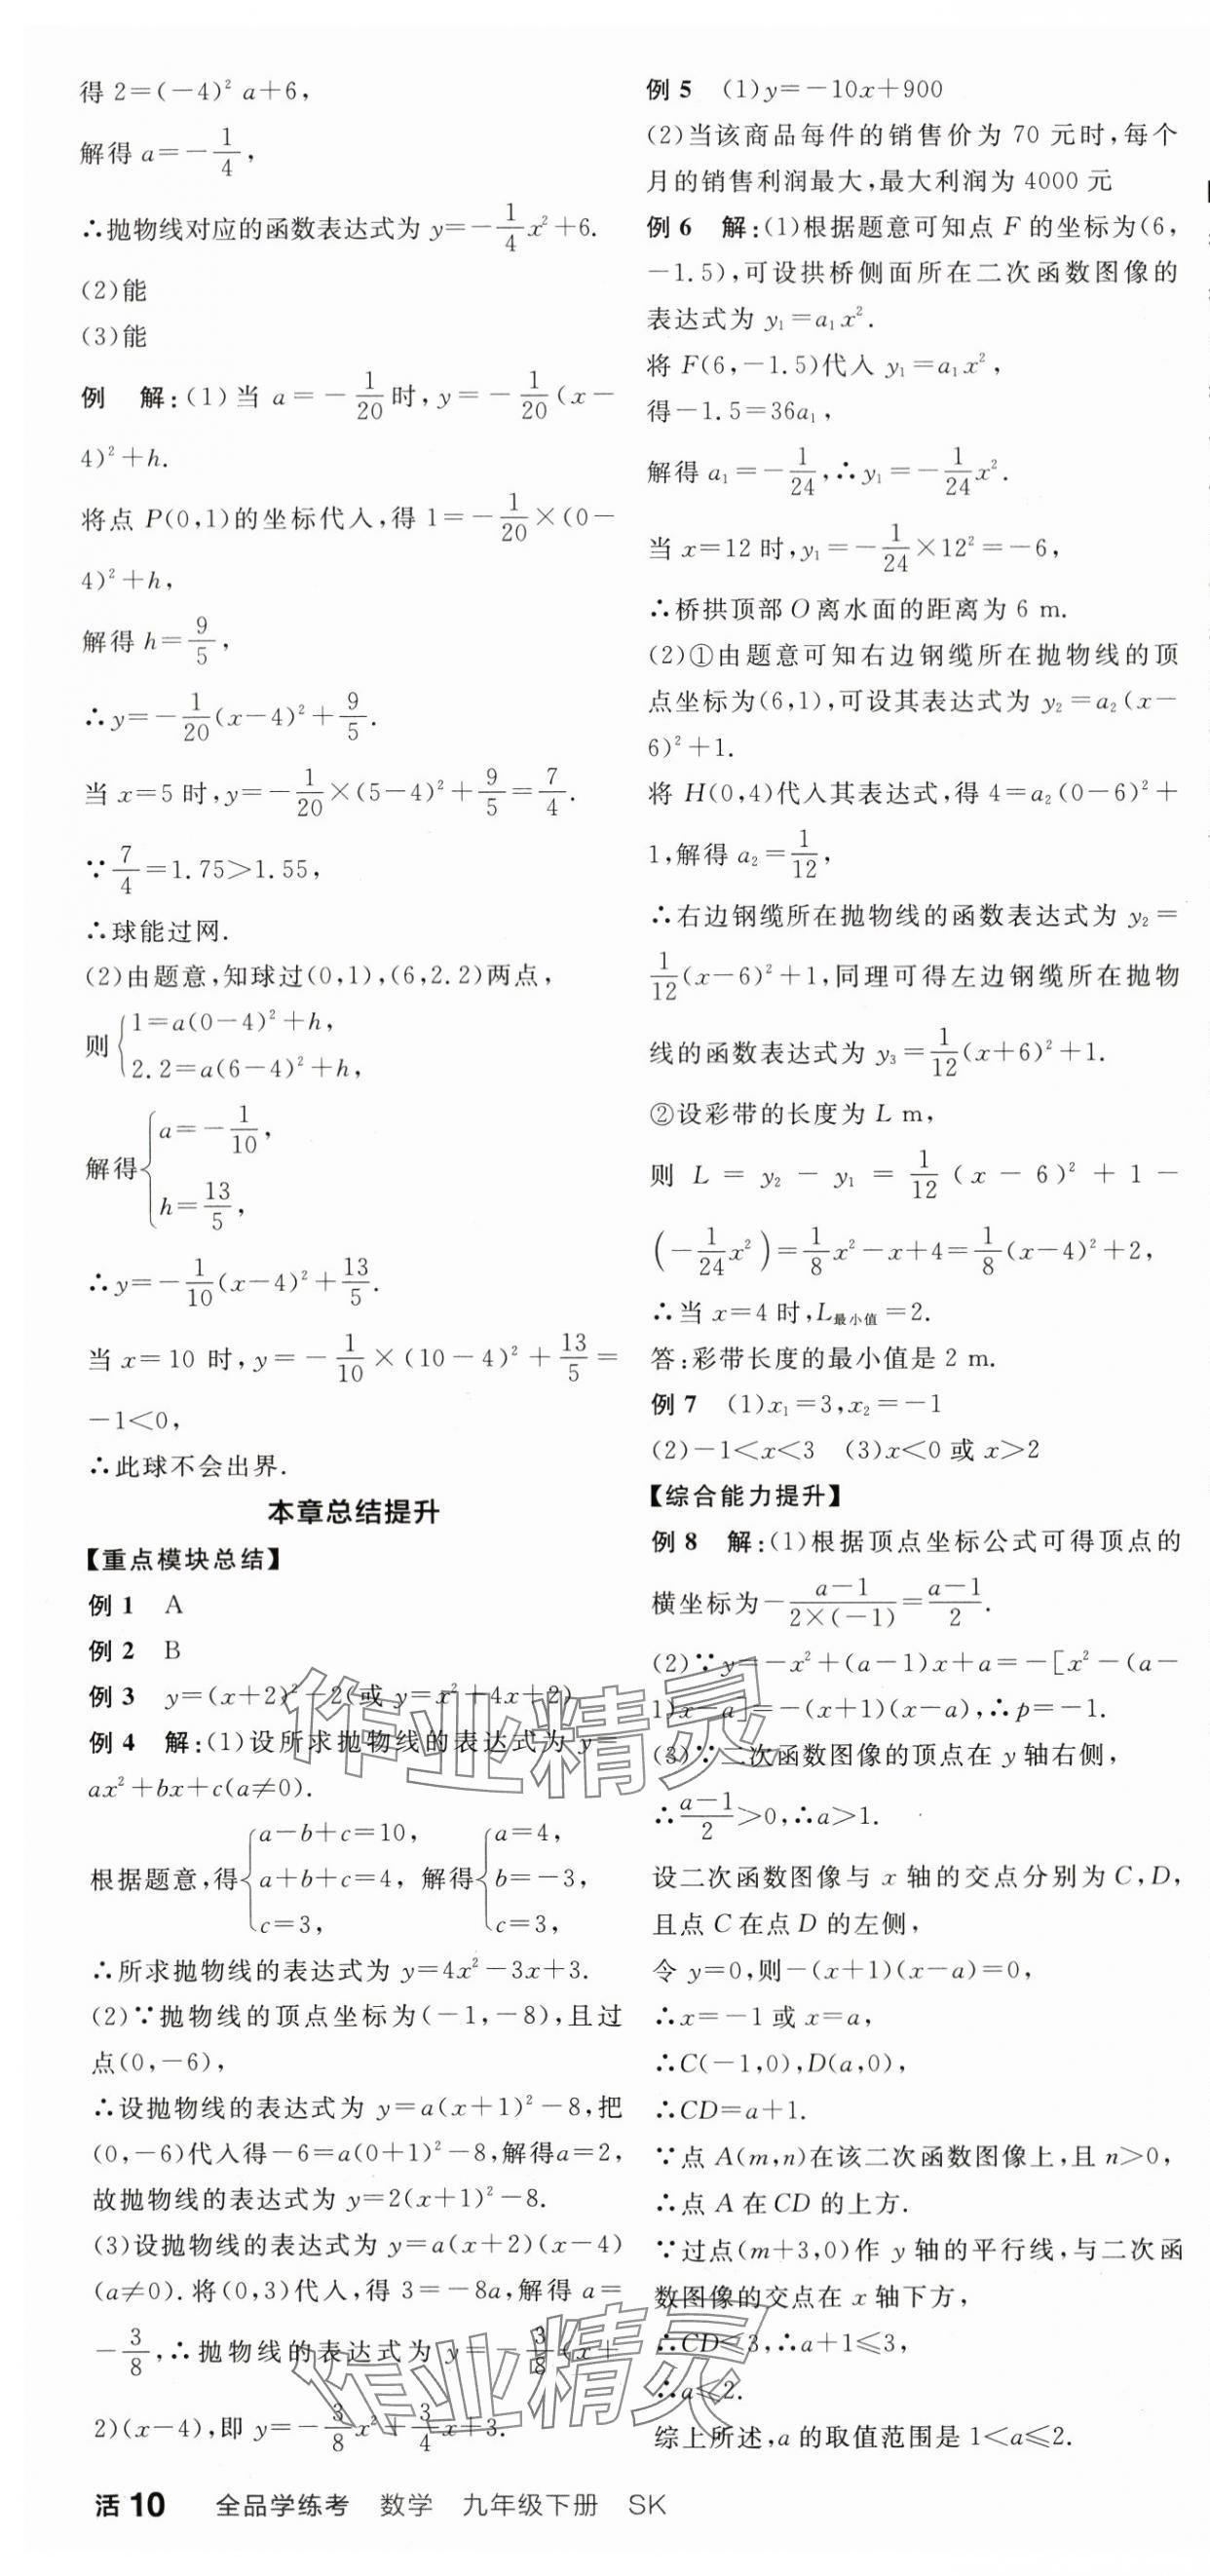 得 2=(-4)² a+6,
解得 a=-1/4,
∴抛物线对应的函数表达式为 y=-1/4x²+6.
(2)能
(3)能
例 解:(1)当 a=-1/20时,y=-1/20(x-
4)²+h.
将点 P(0,1)的坐标代入,得 1=-1/20×(0-
4)²+h,
解得 h=9/5,
∴y=-1/20(x-4)²+9/5.
当 x=5 时,y=-1/20×(5-4)²+9/5=7/4.
∵7/4=1.75>1.55,
∴球能过网.
(2)由题意,知球过(0,1),(6,2.2)两点,
则{1=a(0-4)²+h,
2.2=a(6-4)²+h,
解得{a=-1/10,
h=13/5,
∴y=-1/10(x-4)²+13/5.
当 x=10 时,y=-1/10×(10-4)²+13/5=
-1<0,
∴此球不会出界.
本章总结提升
【重点模块总结】
例 1 A
例 2 B
例 3 y=(x+2)²-2(或 y=x²+4x+2)
例 4 解:(1)设所求抛物线的表达式为 y=
ax²+bx+c(a≠0).
根据题意,得{a-b+c=10, a+b+c=4, c=3, 解得{a=4, b=-3, c=3,
∴所求抛物线的表达式为 y=4x²-3x+3.
(2)∵抛物线的顶点坐标为(-1,-8),且过
点(0,-6),
∴设抛物线的表达式为 y=a(x+1)²-8,把
(0,-6)代入得-6=a(0+1)²-8,解得a=2,
故抛物线的表达式为 y=2(x+1)²-8.
(3)设抛物线的表达式为 y=a(x+2)(x-4)
(a≠0).将(0,3)代入,得 3=-8a,解得 a=
-3/8,∴抛物线的表达式为 y=-3/8(x+
2)(x-4),即 y=-3/8x²+3/4x+3.
活 10 全品学练考 数学 九年级下册 SK
例 5 (1)y=-10x+900
(2)当该商品每件的销售价为 70 元时,每个
月的销售利润最大,最大利润为 4000 元
例 6 解:(1)根据题意可知点 F 的坐标为(6,
-1.5),可设拱桥侧面所在二次函数图像的
表达式为 y₁=a₁x².
将 F(6,-1.5)代入 y₁=a₁x²,
得-1.5=36a₁,
解得 a₁=-1/24,∴y₁=-1/24x².
当 x=12 时,y₁=-1/24×12²=-6,
∴桥拱顶部 O 离水面的距离为 6 m.
(2)①由题意可知右边钢缆所在抛物线的顶
点坐标为(6,1),可设其表达式为 y₂=a₂(x-
6)²+1.
将 H(0,4)代入其表达式,得 4=a₂(0-6)²+
1,解得 a₂=1/12,
∴右边钢缆所在抛物线的函数表达式为 y₂=
1/12(x-6)²+1,同理可得左边钢缆所在抛物
线的函数表达式为 y₃=1/12(x+6)²+1.
②设彩带的长度为 L m,
则 L=y₂-y₁=1/12(x-6)²+1-
(-1/24x²)=1/8x²-x+4=1/8(x-4)²+2,
∴当 x=4 时,L最小值=2.
答:彩带长度的最小值是 2 m.
例 7 (1)x₁=3,x₂=-1
(2)-1<x<3 (3)x<0 或 x>2
【综合能力提升】
例 8 解:(1)根据顶点坐标公式可得顶点的
横坐标为-(a-1)/(2×(-1))=(a-1)/2.
(2)∵y=-x²+(a-1)x+a=-[x²-(a-
1)x-a]=-(x+1)(x-a),∴p=-1.
(3)∵二次函数图像的顶点在 y 轴右侧,
∴(a-1)/2>0,∴a>1.
设二次函数图像与 x 轴的交点分别为 C,D,
且点 C 在点 D 的左侧,
令 y=0,则-(x+1)(x-a)=0,
∴x=-1 或 x=a,
∴C(-1,0),D(a,0),
∴CD=a+1.
∵点 A(m,n)在该二次函数图像上,且 n>0,
∴点 A 在 CD 的上方.
∵过点(m+3,0)作 y 轴的平行线,与二次函
数图像的交点在 x 轴下方,
∴CD≤3,∴a+1≤3,
∴a≤2.
综上所述,a 的取值范围是 1<a≤2.
作业精灵
作业精灵